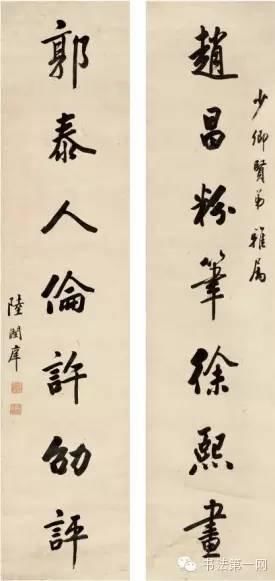 少卿賢弟雅屬
趙昌粉筆徐熙畫
郭泰人倫許劭評
陸潤庠
书法第一网